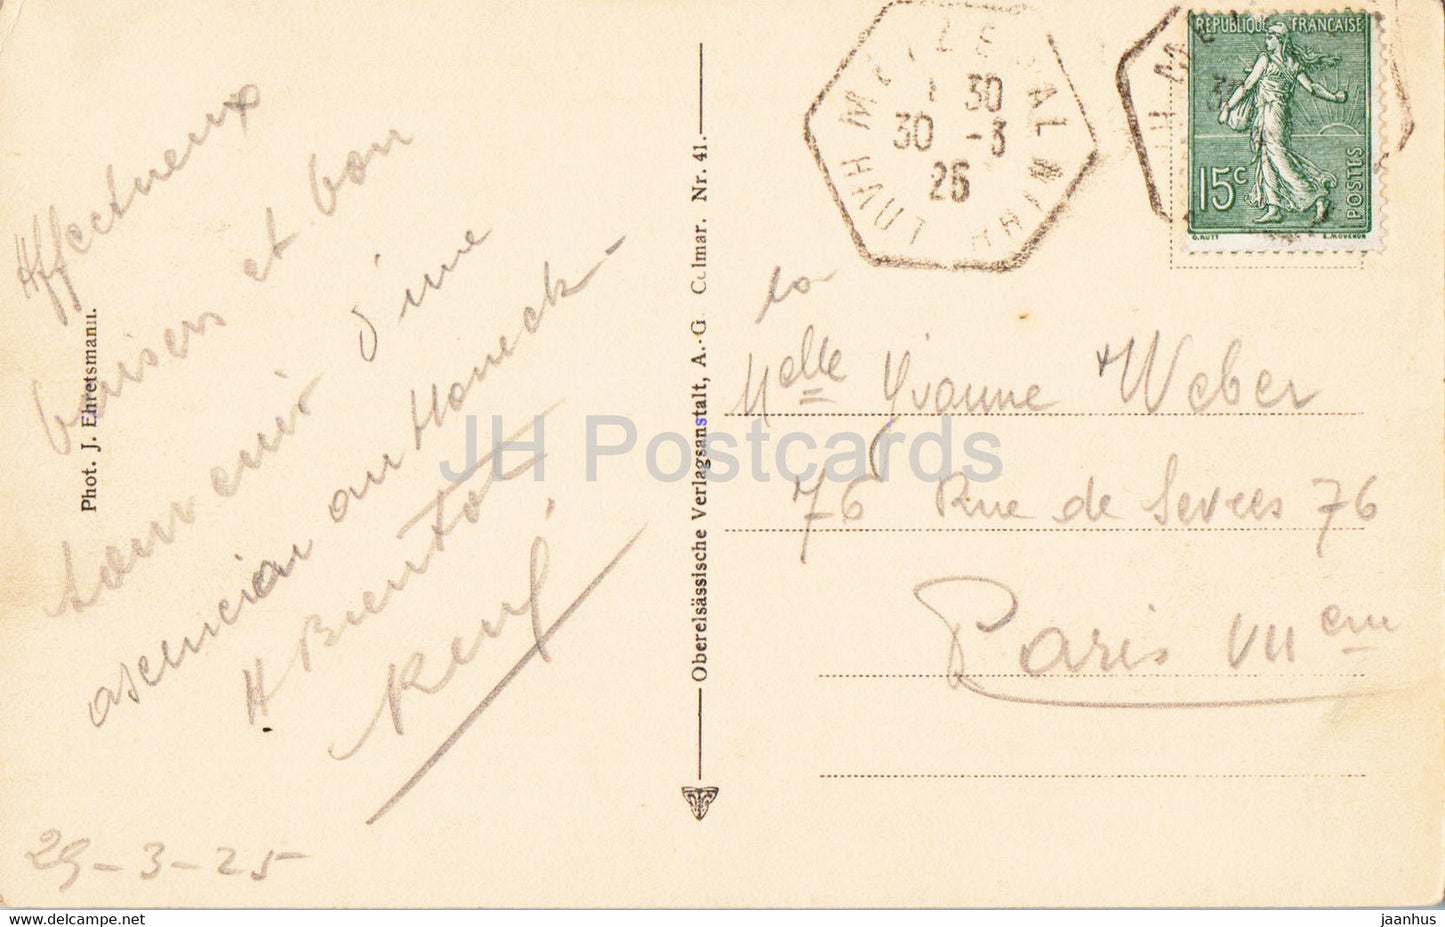 Affectueux
baisers et bon
souvenir d'une
asencion au Honeck
A Bientot
René
29-3-25
Phot. J. Ehretsmann.
Oberelsässische Verlagsanstalt, A.-G. Colmar. Nr. 41.
1 30
30 -3
25
HAUT RHIN
REPUBLIQUE FRANÇAISE
15c
POSTES
O.ROTY
E.MOUCHON
Melle Yvonne Weber
76 Rue de Sevres 76
Paris VII em
JH Postcards
jaanhus